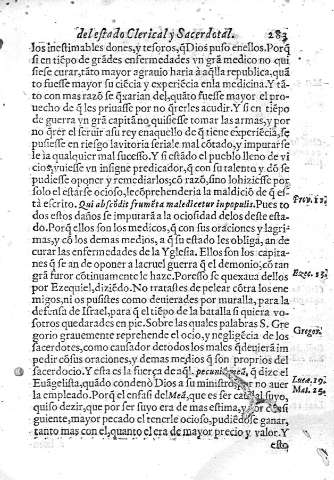 del estado Clerical y Sacerdotal. 283
los inestimables dones, y tesoros, q̃ Dios puso enellos. Porq̃
si en tiẽpo de grãdes enfermedades vn grã medico no qui
siese curar, tãto mayor agrauio haria à aq̃lla republica, quã
to fuesse mayor su ciẽcia y experiẽcia enla medicina. Y tã-
to con mas razõ se q̃xarian del, quãto fuesse mayor el pro
uecho de q̃ les priuasse por no q̃rerles acudir. Y si en tiẽpo
de guerra vn grã capitã no quisiesse tomar las armas, y por
no q̃rer el seruir a su rey enaquello de q̃ tiene experiẽcia, se
pusiesse en riesgo la vitoria seriale mal cõtado, y impurarse
le ia qualquier mal sucesso. Y si estãdo el pueblo lleno de vi
cios, vuiesse vn insigne predicador, q̃ con su talento y dõ se
pudiesse oponer y remediarlos; cõ razõ, sino lo hiziesse por
solo el estarse ocioso, le cõprehenderia la maldiciõ de q̃ es-
tà escrito. Qui abscõdit frumẽta maledicetur in populis. Pues to
dos estos daños se imputarã a la ociosidad delos deste esta-
do. Porq̃ ellos son los medicos, q̃ con sus oraciones y lagri-
mas, y cõ los demas medios, a q̃ su estado les obliga, an de
curar las enfermedades de la Yglesia. Ellos son los capita-
nes q̃ se an de oponer a la cruel guerra q̃ el demonio, cõ tan
grã furor cõtinuamente le haze. Por esso se quexaua dellos
por Ezequiel, diziẽdo. No tratastes de pelear cõtra los ene
migos, ni os pusistes como deuierades por muralla, para la
defensa de Israel, para q̃ el tiẽpo de la batalla si quiera vo-
sotros quedarades en pie. Sobre las quales palabras S. Gre
gorio grauemente reprehende el ocio, y negligẽcia de los
sacerdotes, como causador de todos los males q̃ deuierã im
pedir cõ sus oraciones, y demas medios q̃ son proprios del
sacerdocio. Y esta es la fuerça de aq̃l. pecuniã meã, q̃ dize el
Euãgelista, quãdo condenò Dios a su ministro por no auer
la empleado. Porq̃ el enfasi del Meã, que es ser catal suyo,
quiso dezir, que por ser suyo era de mas estima, y por consi
guiente, mayor pecado el tenerle ocioso, pudiẽdose ganar,
tanto mas con el, quanto el era de mayor precio y valor. Y
esto
Prov. 11.
Ezec. 13.
Gregor.
Luca. 19.
Mat. 25.